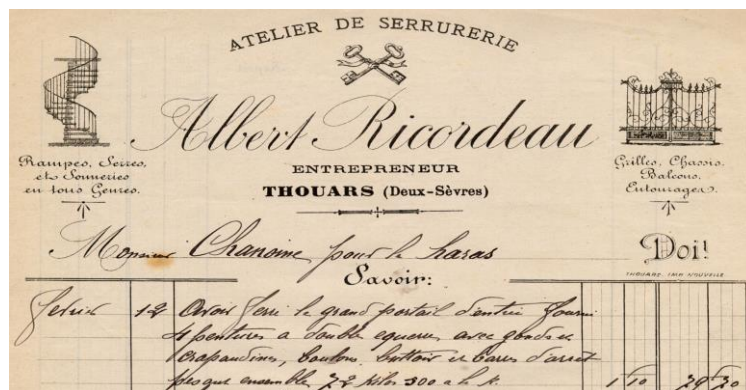 ATELIER DE SERRURERIE
Albert Ricordeau
ENTREPRENEUR
THOUARS (Deux-Sèvres)
Rampes, Serres,
et Sonneries
en tous Genres.
Grilles, Chassis,
Balcons,
Entourages.
Monsieur Chanoine pour le haras Doit
THOUARS. IMP. NOUVELLE
Savoir:
fevrier 12 Avoir ferré le grand portail d'entrée fourni
4 pentures a double equerre avec gonds et
Crapaudines, boulons, buttoir et barres d'arret
pesant ensemble 72 kilos 300 a le k. 1 10 79 70